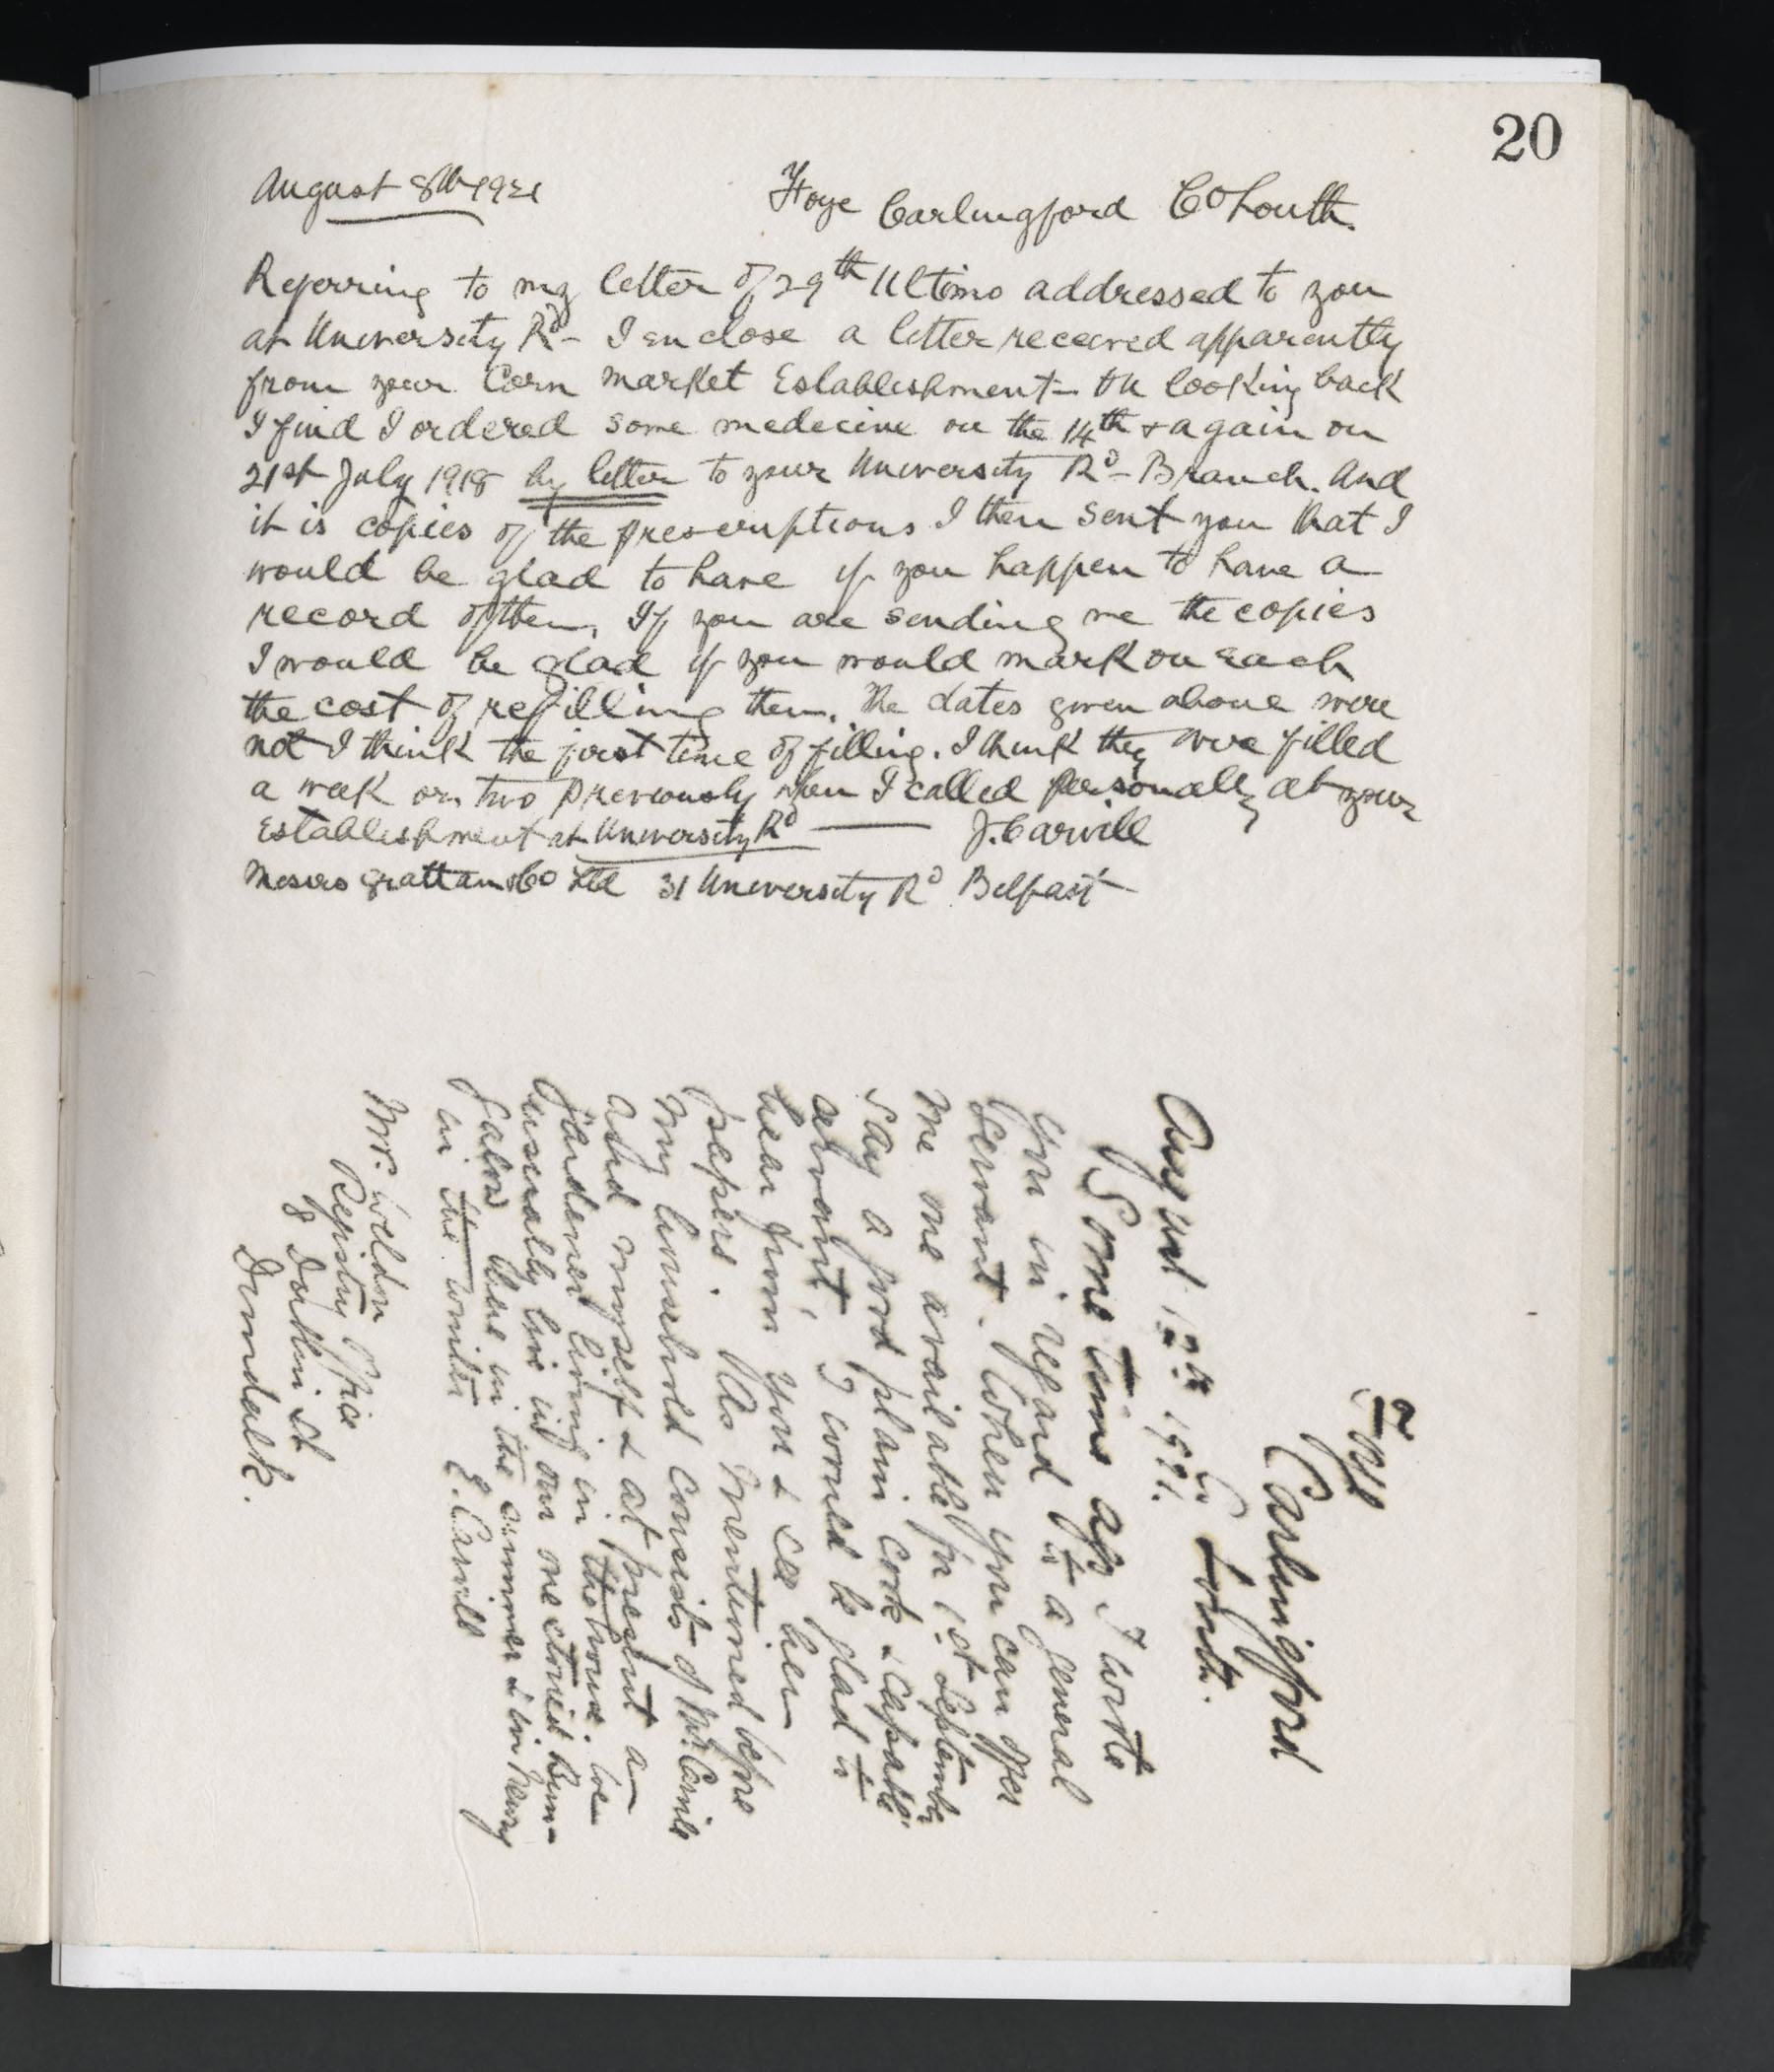 20
August 8th 1921 Foye Carlingford Co Louth.
Referring to my letter of 29th Ultimo addressed to you
at University Rd - I enclose a letter received apparently
from your Corn market Establishment - On looking back
I find I ordered some medecine on the 14th & again on
21st July 1918 by letter to your University Rd - Branch. And
it is copies of the prescriptions I then sent you that I
would be glad to have if you happen to have a
record of them. If you are sending me the copies
I would be glad if you would mark on each
the cost of refilling them. The dates given above were
not I think the first time of filling. I think they were filled
a week or two previously when I called personally at your
Establishment at University Rd — J. Carvill
Messrs Grattan & Co Ltd 31 University Rd Belfast
Foye
Carlingford
Co Louth.
August 12th 1921.
Some time ago I wrote
you in regard to a general
Servant. When you can offer
me one available for 1st September
say a good plain cook & capable
servant, I would be glad to
hear from you & see her
papers. As mentioned before
my household consists of Mr. Carvill
and myself & at present a
gardener living in the house. We
generally live in our one storied Bun-
galow here in the summer & in Newry
in the winter E. Carvill
Mrs. Weldon
Registry Office
8 Jocklin St
Dundalk.